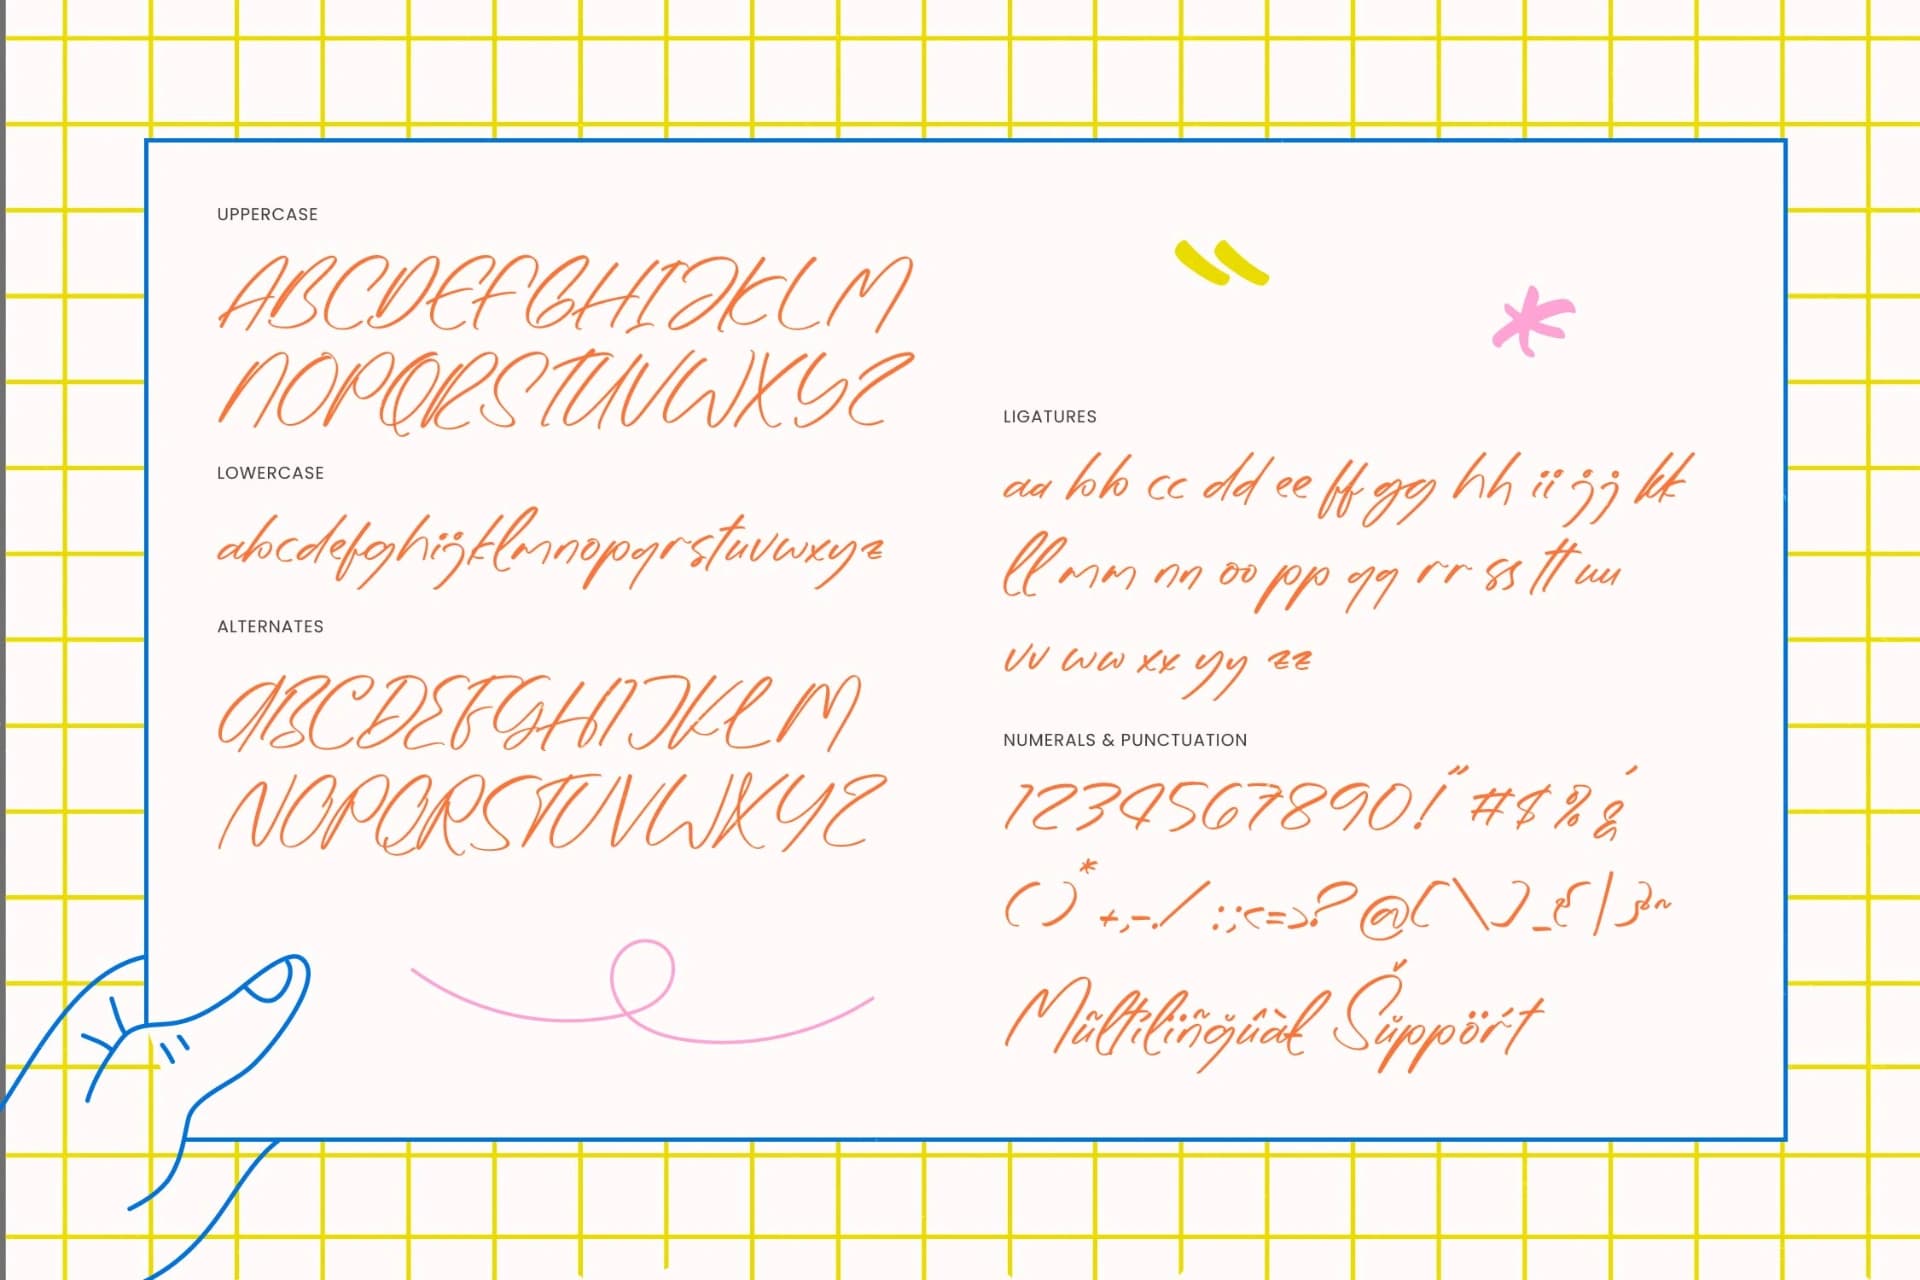 UPPERCASE
ABCDEFGHIJKLM
NOPQRSTUVWXYZ
LOWERCASE
abcdefghijklmnopqrstuvwxyz
ALTERNATES
ABCDEFGHIJKLM
NOPQRSTUVWXYZ
LIGATURES
aa bb cc dd ee ff gg hh ii jj kk
ll mm nn oo pp qq rr ss tt uu
vv ww xx yy zz
NUMERALS & PUNCTUATION
1234567890!"#$%&'
()*+,-./:;<=>?@[\]_{|}~
Mũltíliñğûàł Šüppöŕt